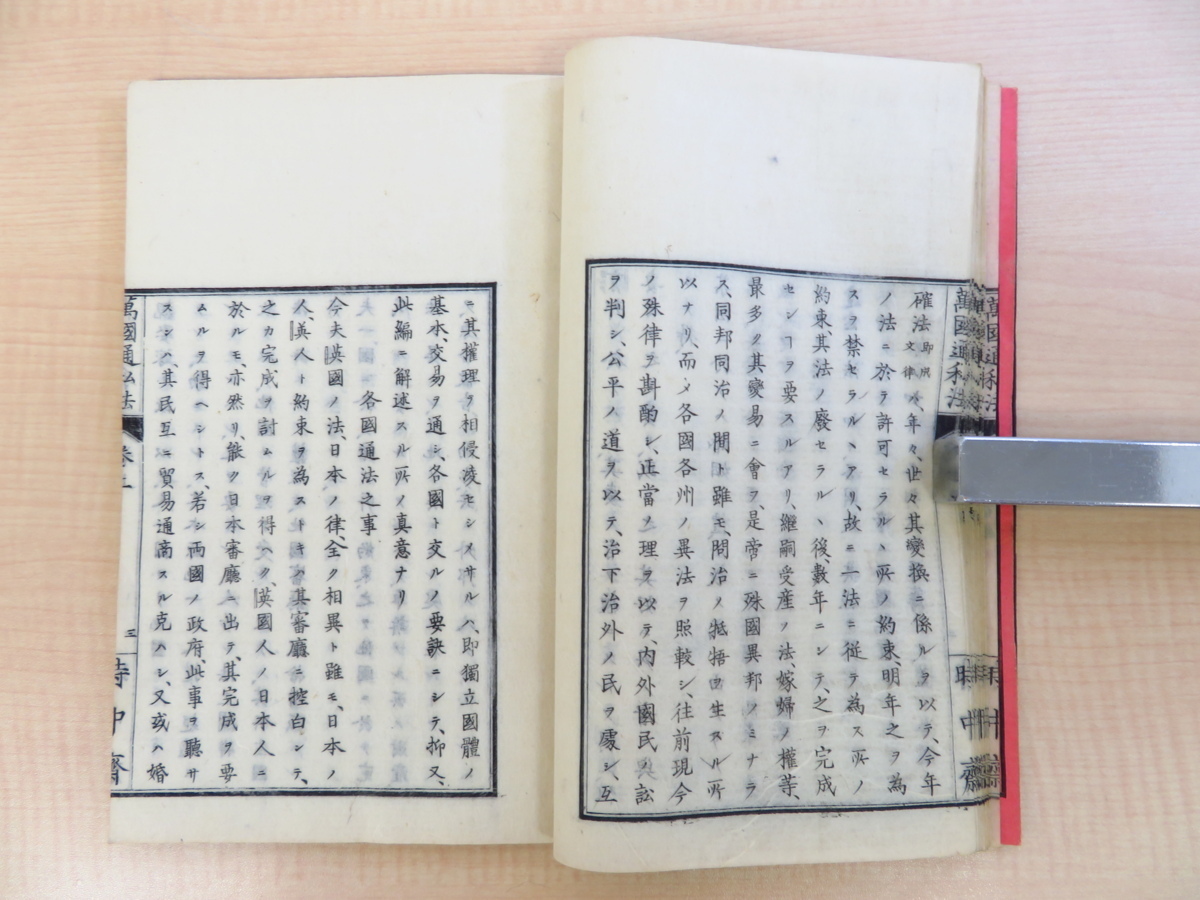 確法即成文律ハ、年々、世々其變換ニ係ルヲ以テ、今年
ノ法ニ於テ許可セラルヽ所ノ約束、明年之ヲ為
スヲ禁セラルヽアリ、故ニ一法ニ従テ為ス所ノ
約束、其法ノ廢セラルヽ後、數年ニシテ、之ヲ完成
センヿヲ要スルアリ、繼嗣受産ノ法、嫁婦ノ權等、
最多ク其變易ニ會ヲ、是帝ニ殊國異邦ノミナラ
ス、同邦同治ノ間ト雖モ、問治ノ牴牾由生スル所
以ナリ、而メ各國各州ノ異法ヲ照較シ、往前現今
ノ殊律ヲ斟酌シ、正當ノ理ヲ以テ、内外國民ノ訟
ヲ判シ、公平ノ道ヲ以テ、治下治外ノ民ヲ處シ、互
ニ其權理ヲ相侵凌セシメサルハ、即獨立國體ノ
基本、交易ヲ通シ、各國ト交ルノ要訣ニシテ、抑又、
此編ニ解述スル所ノ真意ナリ
各國通法之事
今夫英國ノ法、日本ノ律、全ク相異ト雖モ、日本ノ
人、英人ト約束ヲ為ストキハ、其審廳ニ控白シテ、
之カ完成ヲ討ムルヲ得ヘク、英國人ノ日本人ニ
於ルモ、亦然リ、能ク日本審廳ニ出テ、其完成ヲ要
ムルヲ得ヘシトス、若シ両國ノ政府、此事ヲ聽サ
スンハ、其民互ニ貿易通商スル克ハシ、又或ハ婚
萬國通私法
巻二
三
時中齋